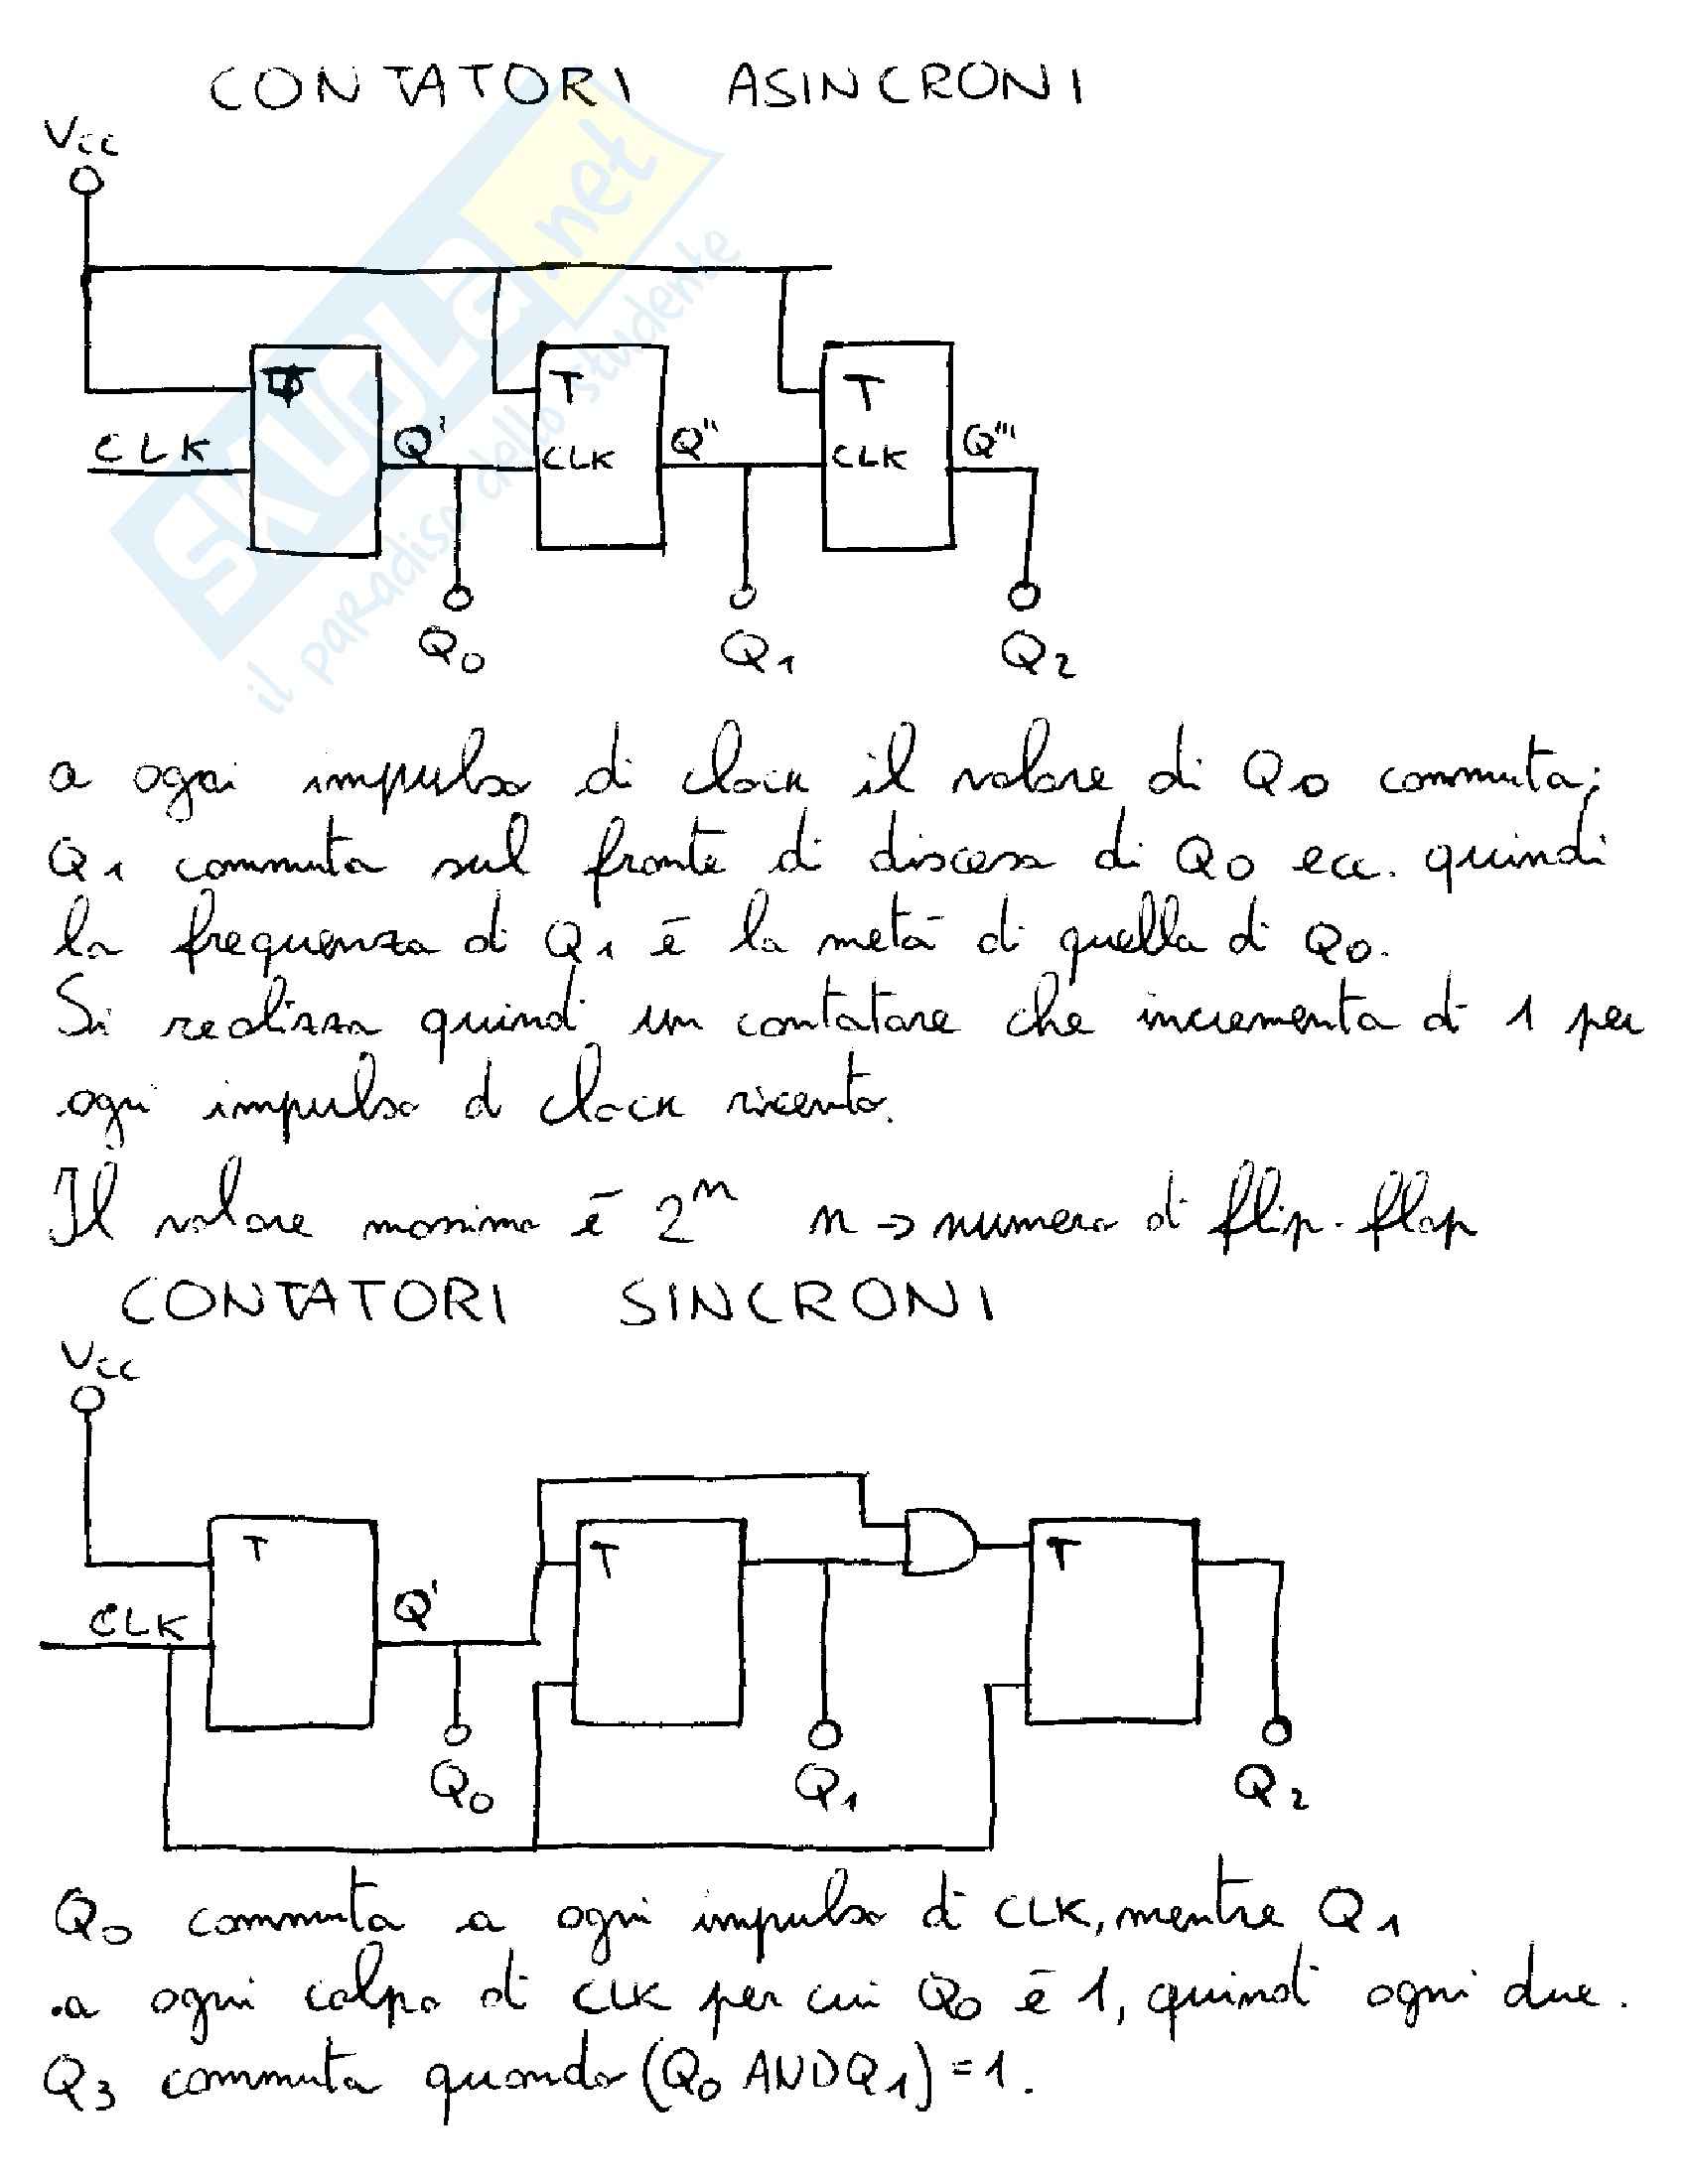 CONTATORI ASINCRONI
Vcc
T T T
CLK Q' CLK Q'' CLK Q'''
Q0 Q1 Q2
SKUOLa.net
il paradiso dello studente
a ogni impulso di clock il valore di Q0 commuta;
Q1 commuta sul fronte di discesa di Q0 ecc. quindi
la frequenza di Q1 è la metà di quella di Q0.
Si realizza quindi un contatore che incrementa di 1 per
ogni impulso di clock ricevuto.
Il valore massimo è 2^n n → numero di flip-flop
CONTATORI SINCRONI
Vcc
T T T
CLK Q'
Q0 Q1 Q2
Q0 commuta a ogni impulso di CLK, mentre Q1
a ogni colpo di CLK per cui Q0 è 1, quindi ogni due.
Q3 commuta quando (Q0 AND Q1) = 1.